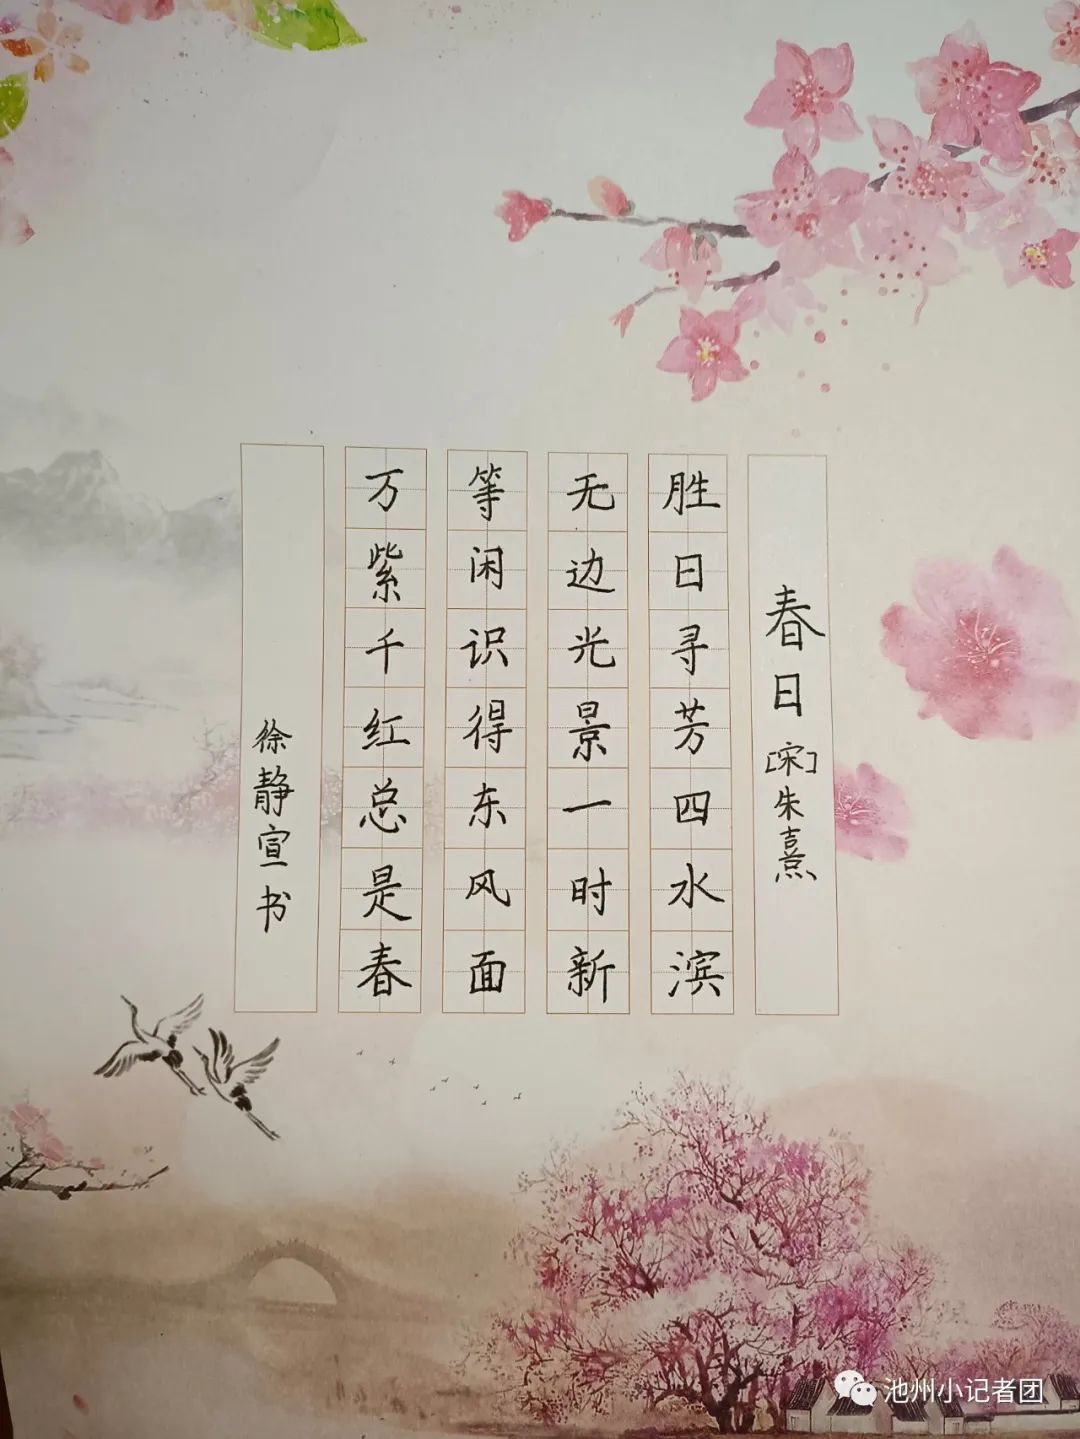 春日 [宋]朱熹
胜日寻芳四水滨
无边光景一时新
等闲识得东风面
万紫千红总是春
徐静宣书
池州小记者团